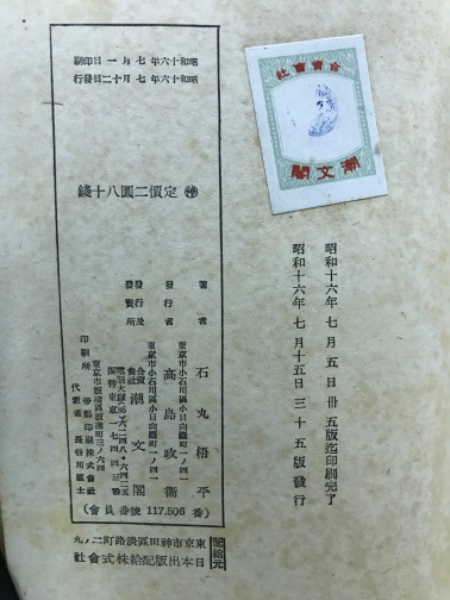 合資會社
潮文閣
昭和十六年七月五日卅五版迄印刷完了
昭和十六年七月十五日三十五版發行
昭和十六年七月一日印刷
昭和十六年七月十二日發行
定價二圓八十錢
著者 石丸梧平
東京市小石川區小日向臺町一ノ四一
發行者 高島政衞
東京市小石川區小日向臺町一ノ四一
發行及發賣所 合資會社 潮文閣
振替東京一七四四三番
印刷所 印刷株式會社
代表者 長谷川富士
(會員番號 117,506 番)
配給元
東京市神田區淡路町二ノ九
日本出版配給株式會社